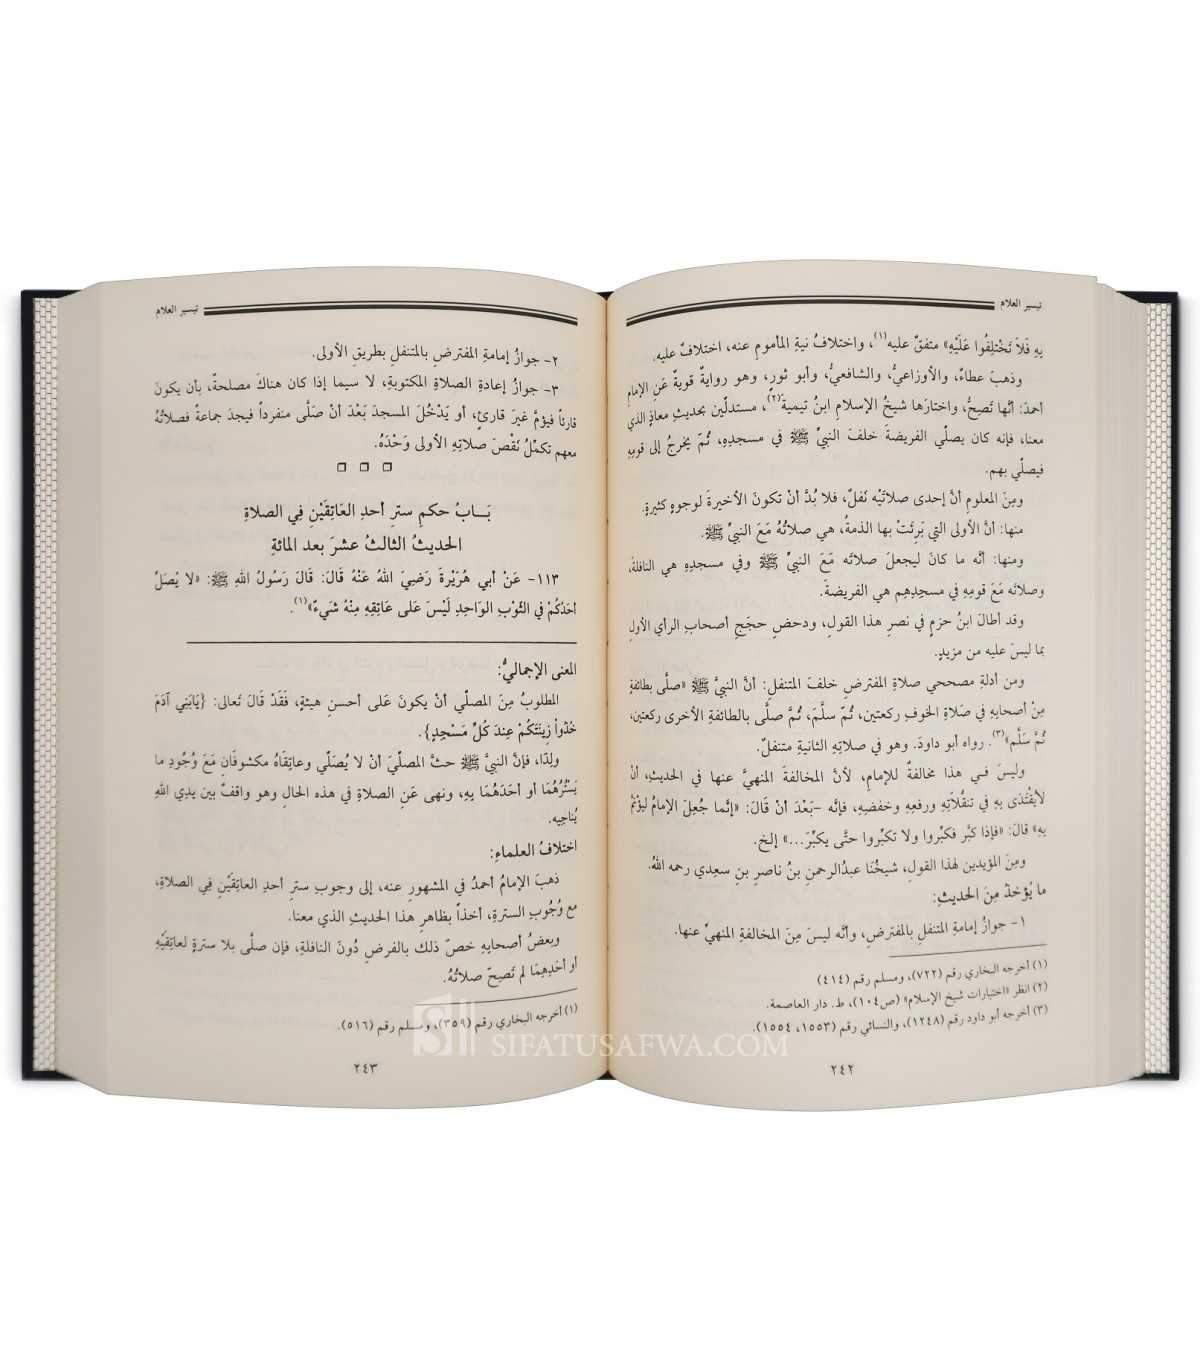 تيسير العلام
بِهِ فَلَا تَخْتَلِفُوا عَلَيْهِ» متفقٌ عليه(١)، واختلافُ نيةِ المأمومِ عنه، اختلافٌ عليه.
وذهبَ عطاءٌ، والأوزاعيُّ، والشافعيُّ، وأبو ثورٍ، وهو روايةٌ قويةٌ عَنِ الإمامِ
أحمدَ: أنَّها تَصِحُّ، واختارَها شيخُ الإسلامِ ابنُ تيميةَ(٢)، مستدلّين بحديثِ معاذٍ الذي
معنا، فإنه كان يصلّي الفريضةَ خلفَ النبيِّ ﷺ في مسجدِهِ، ثُمّ يخرجُ إلى قومِهِ
فيصلّي بهم.
ومِنَ المعلومِ أنَّ إحدى صلاتَيْه نَفلٌ، فلا بُدَّ أنْ تكونَ الأخيرةَ لوجوهٍ كثيرةٍ.
منها: أنَّ الأولى التي بَرِئَتْ بها الذمةُ، هي صلاتُهُ مَعَ النبيِّ ﷺ.
ومنها: أنَّه ما كانَ ليجعلَ صلاتَه مَعَ النبيِّ ﷺ وفي مسجدِهِ هي النافلةَ،
وصلاتَه مَعَ قومِهِ في مسجدِهِم هي الفريضةَ.
وقد أطالَ ابنُ حزمٍ في نصرِ هذا القولِ، ودحضِ حججِ أصحابِ الرأيِ الأولِ
بما ليسَ عليه من مزيدٍ.
ومن أدلةِ مصححي صلاةِ المفترضِ خلفَ المتنفلِ: أنَّ النبيَّ ﷺ «صلَّى بطائفةٍ
مِنْ أصحابِهِ في صَلاةِ الخوفِ ركعتين، ثُمّ سلَّمَ، ثُمَّ صلَّى بالطائفةِ الأخرى ركعتين،
ثُمَّ سَلَّم»(٣). رواه أبو داودَ. وهو في صلاتِهِ الثانيةِ متنفلٌ.
وليسَ في هذا مخالفةٌ للإمامِ، لأنَّ المخالفةَ المنهيَّ عنها في الحديثِ، أنْ
لا يُقْتَدَى بِهِ في تنقُّلَاتِهِ ورفعِهِ وخفضِهِ، فإنَّه –بَعْدَ أنْ قَالَ: «إنَّما جُعِلَ الإمامُ ليؤْتَمَّ
بِهِ» قالَ: «فإذا كبَّر فكبِّروا ولا تكبِّروا حتَّى يكبِّرَ...» إلخ.
ومِنَ المؤيدين لهذا القولِ، شيخُنَا عبدُالرحمنِ بنُ ناصرٍ بنِ سعِدي رحمه اللهُ.
ما يُؤخذُ مِنَ الحديثِ:
١– جوازُ إمامةِ المتنفلِ بالمفترضِ، وأنَّه ليسَ مِنَ المخالفةِ المنهيِّ عنها.
(١) أخرجه البخاري رقم (٧٢٢)، ومسلم رقم (٤١٤)
(٢) انظر «اختيارات شيخ الإسلام» (ص١٠٤)، ط. دار العاصمة.
(٣) أخرجه أبو داود رقم (١٢٤٨)، والنسائي رقم (١٥٥٣، ١٥٥٤).
٢٤٢
تيسير العلام
٢– جوازُ إمامةِ المفترضِ بالمتنفلِ بطريقِ الأولى.
٣– جوازُ إعادةِ الصلاةِ المكتوبةِ، لا سيما إذا كان هناكَ مصلحةٌ، بأن يكونَ
قارئاً فيؤمَّ غيرَ قارئٍ، أو يَدْخُلَ المسجدَ بَعْدَ أنْ صَلَّى منفرداً فيجدَ جماعةً فصلاتُهُ
معهم تكمِّلُ نَقْصَ صلاتِهِ الأولى وَحْدَهُ.
بَـــابُ حكمِ سترِ أحدِ العَاتِقَيْنِ فِي الصلاةِ
الحديثُ الثالثُ عشرَ بعد المائةِ
١١٣– عَنْ أبي هُرَيْرةَ رَضِيَ اللهُ عَنْهُ قَالَ: قَالَ رَسُولُ اللهِ ﷺ: «لا يُصَلِّ
أحَدُكُمْ في الثَّوْبِ الوَاحِدِ لَيْسَ عَلى عَاتِقِهِ مِنْهُ شَيءٌ»(١).
المعنى الإجماليُّ:
المطلوبُ مِنَ المصلّي أنْ يكونَ عَلى أحسنِ هيئةٍ، فَقَدْ قَالَ تَعالى: {يَابَنِي آدَمَ
خُذُواْ زِينَتَكُمْ عِندَ كُلِّ مَسْجِدٍ}.
ولِذَا، فإنَّ النبيَّ ﷺ حثَّ المصلّيَ أنْ لا يُصَلّي وعاتِقَاهُ مكشوفَانِ مَعَ وُجُودِ ما
يَسْتُرُهُمَا أو أحَدَهُمَا بِهِ، ونهى عَنِ الصلاةِ في هذه الحالِ وهو واقفٌ بين يدِي اللهِ
يُناجِيه.
اختلافُ العلماءِ:
ذهبَ الإمامُ أحمدُ في المشهورِ عنه، إلى وجوبِ سترِ أحدِ العاتِقَيْنِ فِي الصلاةِ،
مع وُجُوبِ السترةِ، أخذاً بظاهرِ هذا الحديثِ الذي معنا.
وبعضُ أصحابِهِ خصّ ذلك بالفرضِ دُونَ النافلةِ، فإن صلَّى بلا سترةٍ لعاتِقَيْهِ
أو أحَدِهِمَا لم تَصِحّ صلاتُهُ.
(١) أخرجه البخاري رقم (٣٥٩)، ومسلم رقم (٥١٦).
٢٤٣
SIFATUSAFWA.COM